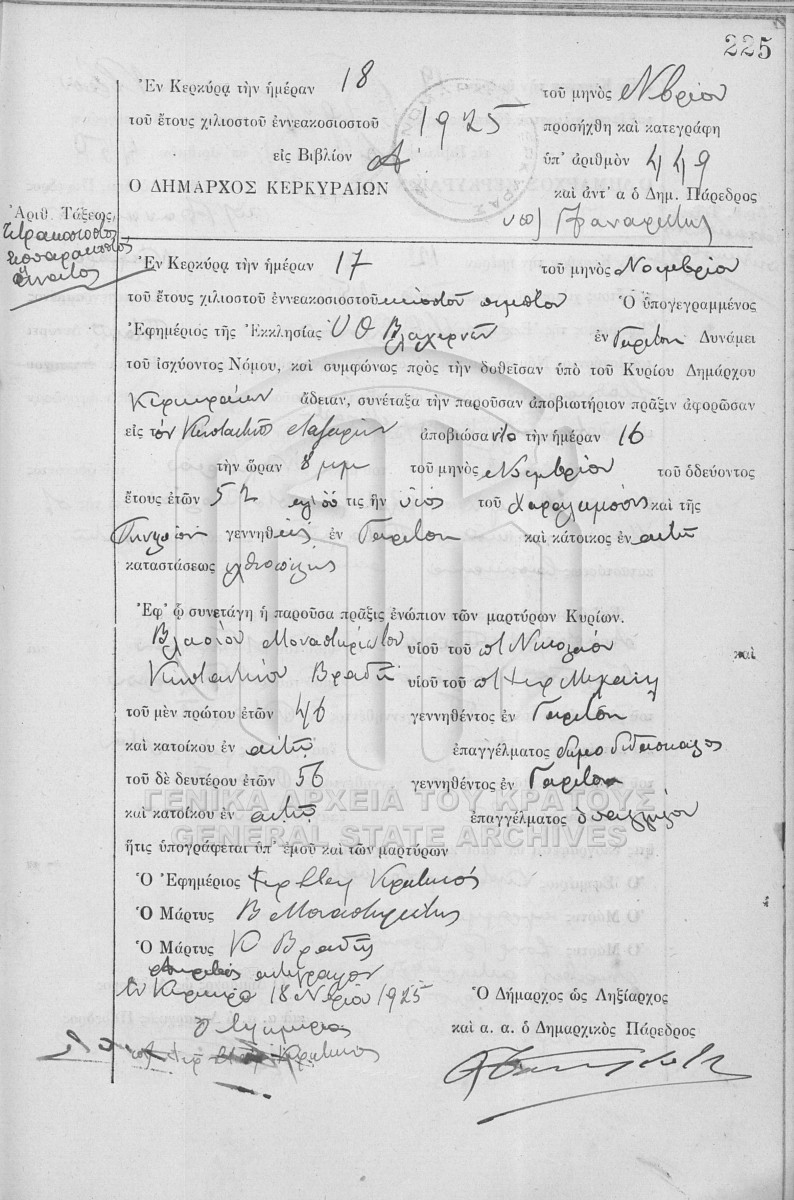 225
Ἐν Κερκύρᾳ τὴν ἡμέραν 18 τοῦ μηνὸς Νβρίου
τοῦ ἔτους χιλιοστοῦ ἐννεακοσιοστοῦ 1925 προσήχθη καὶ κατεγράφη
εἰς Βιβλίον Α ὑπ' ἀριθμὸν 449
Ο ΔΗΜΑΡΧΟΣ ΚΕΡΚΥΡΑΙΩΝ καὶ ἀντ' α ὁ Δημ. Πάρεδρος
Ἀριθ. Τάξεως,
Τετρακοσιοστὸς
τεσσαρακοστὸς
ἔννατος
Ἐν Κερκύρᾳ τὴν ἡμέραν 17 τοῦ μηνὸς Νοεμβρίου
τοῦ ἔτους χιλιοστοῦ ἐννεακοσιοστοῦ εἰκοστοῦ πέμπτου Ὁ ὑπογεγραμμένος
Ἐφημέριος τῆς Ἐκκλησίας Υ Θ Βλαχερνῶν ἐν Γαρίτσῃ Δυνάμει
τοῦ ἰσχύοντος Νόμου, καὶ συμφώνως πρὸς τὴν δοθεῖσαν ὑπὸ τοῦ Κυρίου Δημάρχου
Κερκυραίων ἄδειαν, συνέταξα τὴν παροῦσαν ἀποβιωτήριον πρᾶξιν ἀφορῶσαν
εἰς τὸν Κωνσταντῖνο ἀποβιώσαντα τὴν ἡμέραν 16
τὴν ὥραν 8 μμ τοῦ μηνὸς Νοεμβρίου τοῦ ὁδεύοντος
ἔτους ἐτῶν 52 τις ἦν υἱὸς τοῦ Χαραλάμπους καὶ τῆς
γεννηθεὶς ἐν Γαρίτσῃ καὶ κάτοικος ἐν αὐτῇ
καταστάσεως
Ἐφ' ᾧ συνετάγη ἡ παροῦσα πρᾶξις ἐνώπιον τῶν μαρτύρων Κυρίων.
Βλασίου Μοναστηριώτου υἱοῦ τοῦ Νικολάου καὶ
Κωνσταντίνου Βραδῆ υἱοῦ τοῦ
τοῦ μὲν πρώτου ἐτῶν 46 γεννηθέντος ἐν Γαρίτσῃ
καὶ κατοίκου ἐν αὐτῇ ἐπαγγέλματος δημοδιδάσκαλος
τοῦ δὲ δευτέρου ἐτῶν 56 γεννηθέντος ἐν Γαρίτσῃ
καὶ κατοίκου ἐν αὐτῇ ἐπαγγέλματος
ΓΕΝΙΚΑ ΑΡΧΕΙΑ ΤΟΥ ΚΡΑΤΟΥΣ
GENERAL STATE ARCHIVES
ἥτις ὑπογράφεται ὑπ' ἐμοῦ καὶ τῶν μαρτύρων
Ὁ Ἐφημέριος
Ὁ Μάρτυς Β Μοναστηριώτης
Ὁ Μάρτυς Κ Βραδῆς
Ἀκριβὲς ἀντίγραφον
Ἐν Κερκύρᾳ 18 Νβρίου 1925
Ὁ Ἐφημέριος
Ὁ Δήμαρχος ὡς Ληξίαρχος
καὶ α. α. ὁ Δημαρχικὸς Πάρεδρος